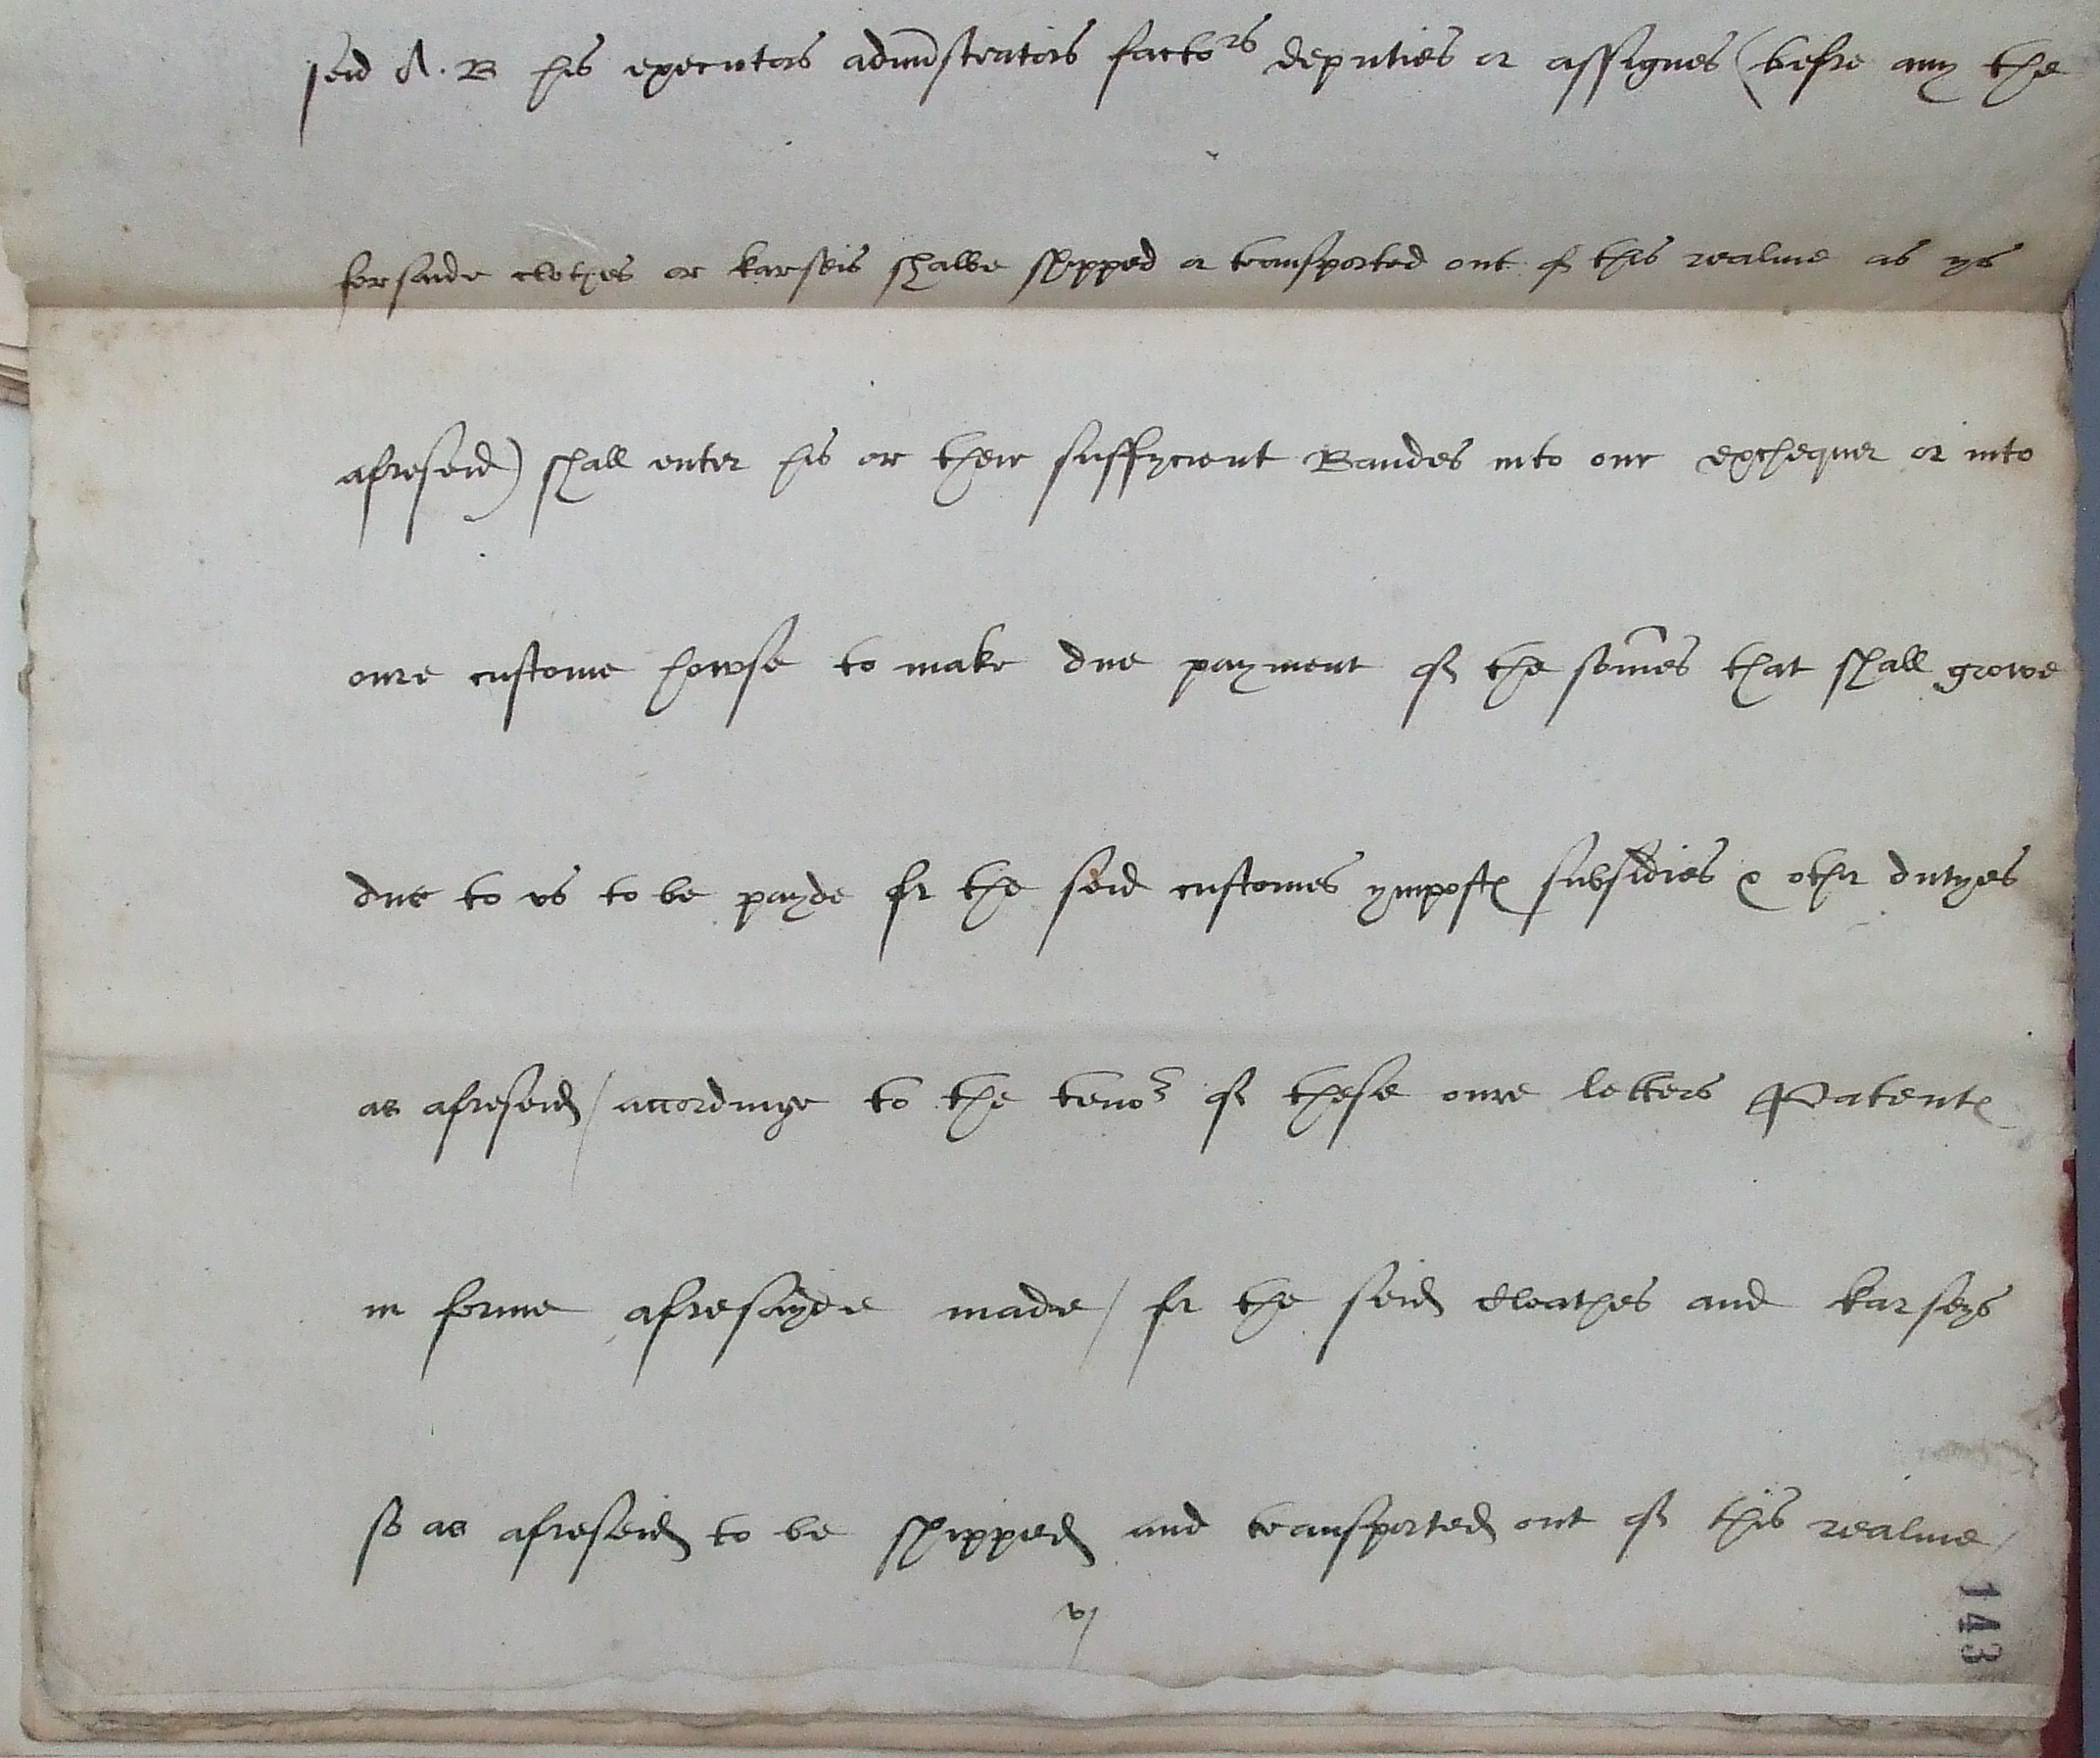 seid A. B his executors admistrators factors deputies or assignes (befre any the
forsaide clothes or karseis shalbe shipped or transported out of this realme as ys
afreseid) shall enter his or their suffycient Bandes into our exchequer or into
oure custome howse to make due payment of the somes that shall growe
due to us to be payde fr the seid customes ympostes subsidies & other dutyes
as afreseid / accordinge to the tenor of these oure letters Patentes
in forme afresayde made / fr the seid cloathes and karseys
so as afreseid to be shipped and transported out of this realme /
vj
143